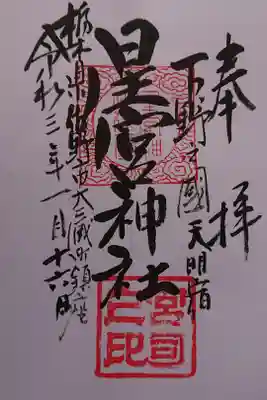 奉拝
下野之國天明宿
星宮神社
宮司之印
栃木県佐野市大蔵町鎮座
令和三年一月十六日